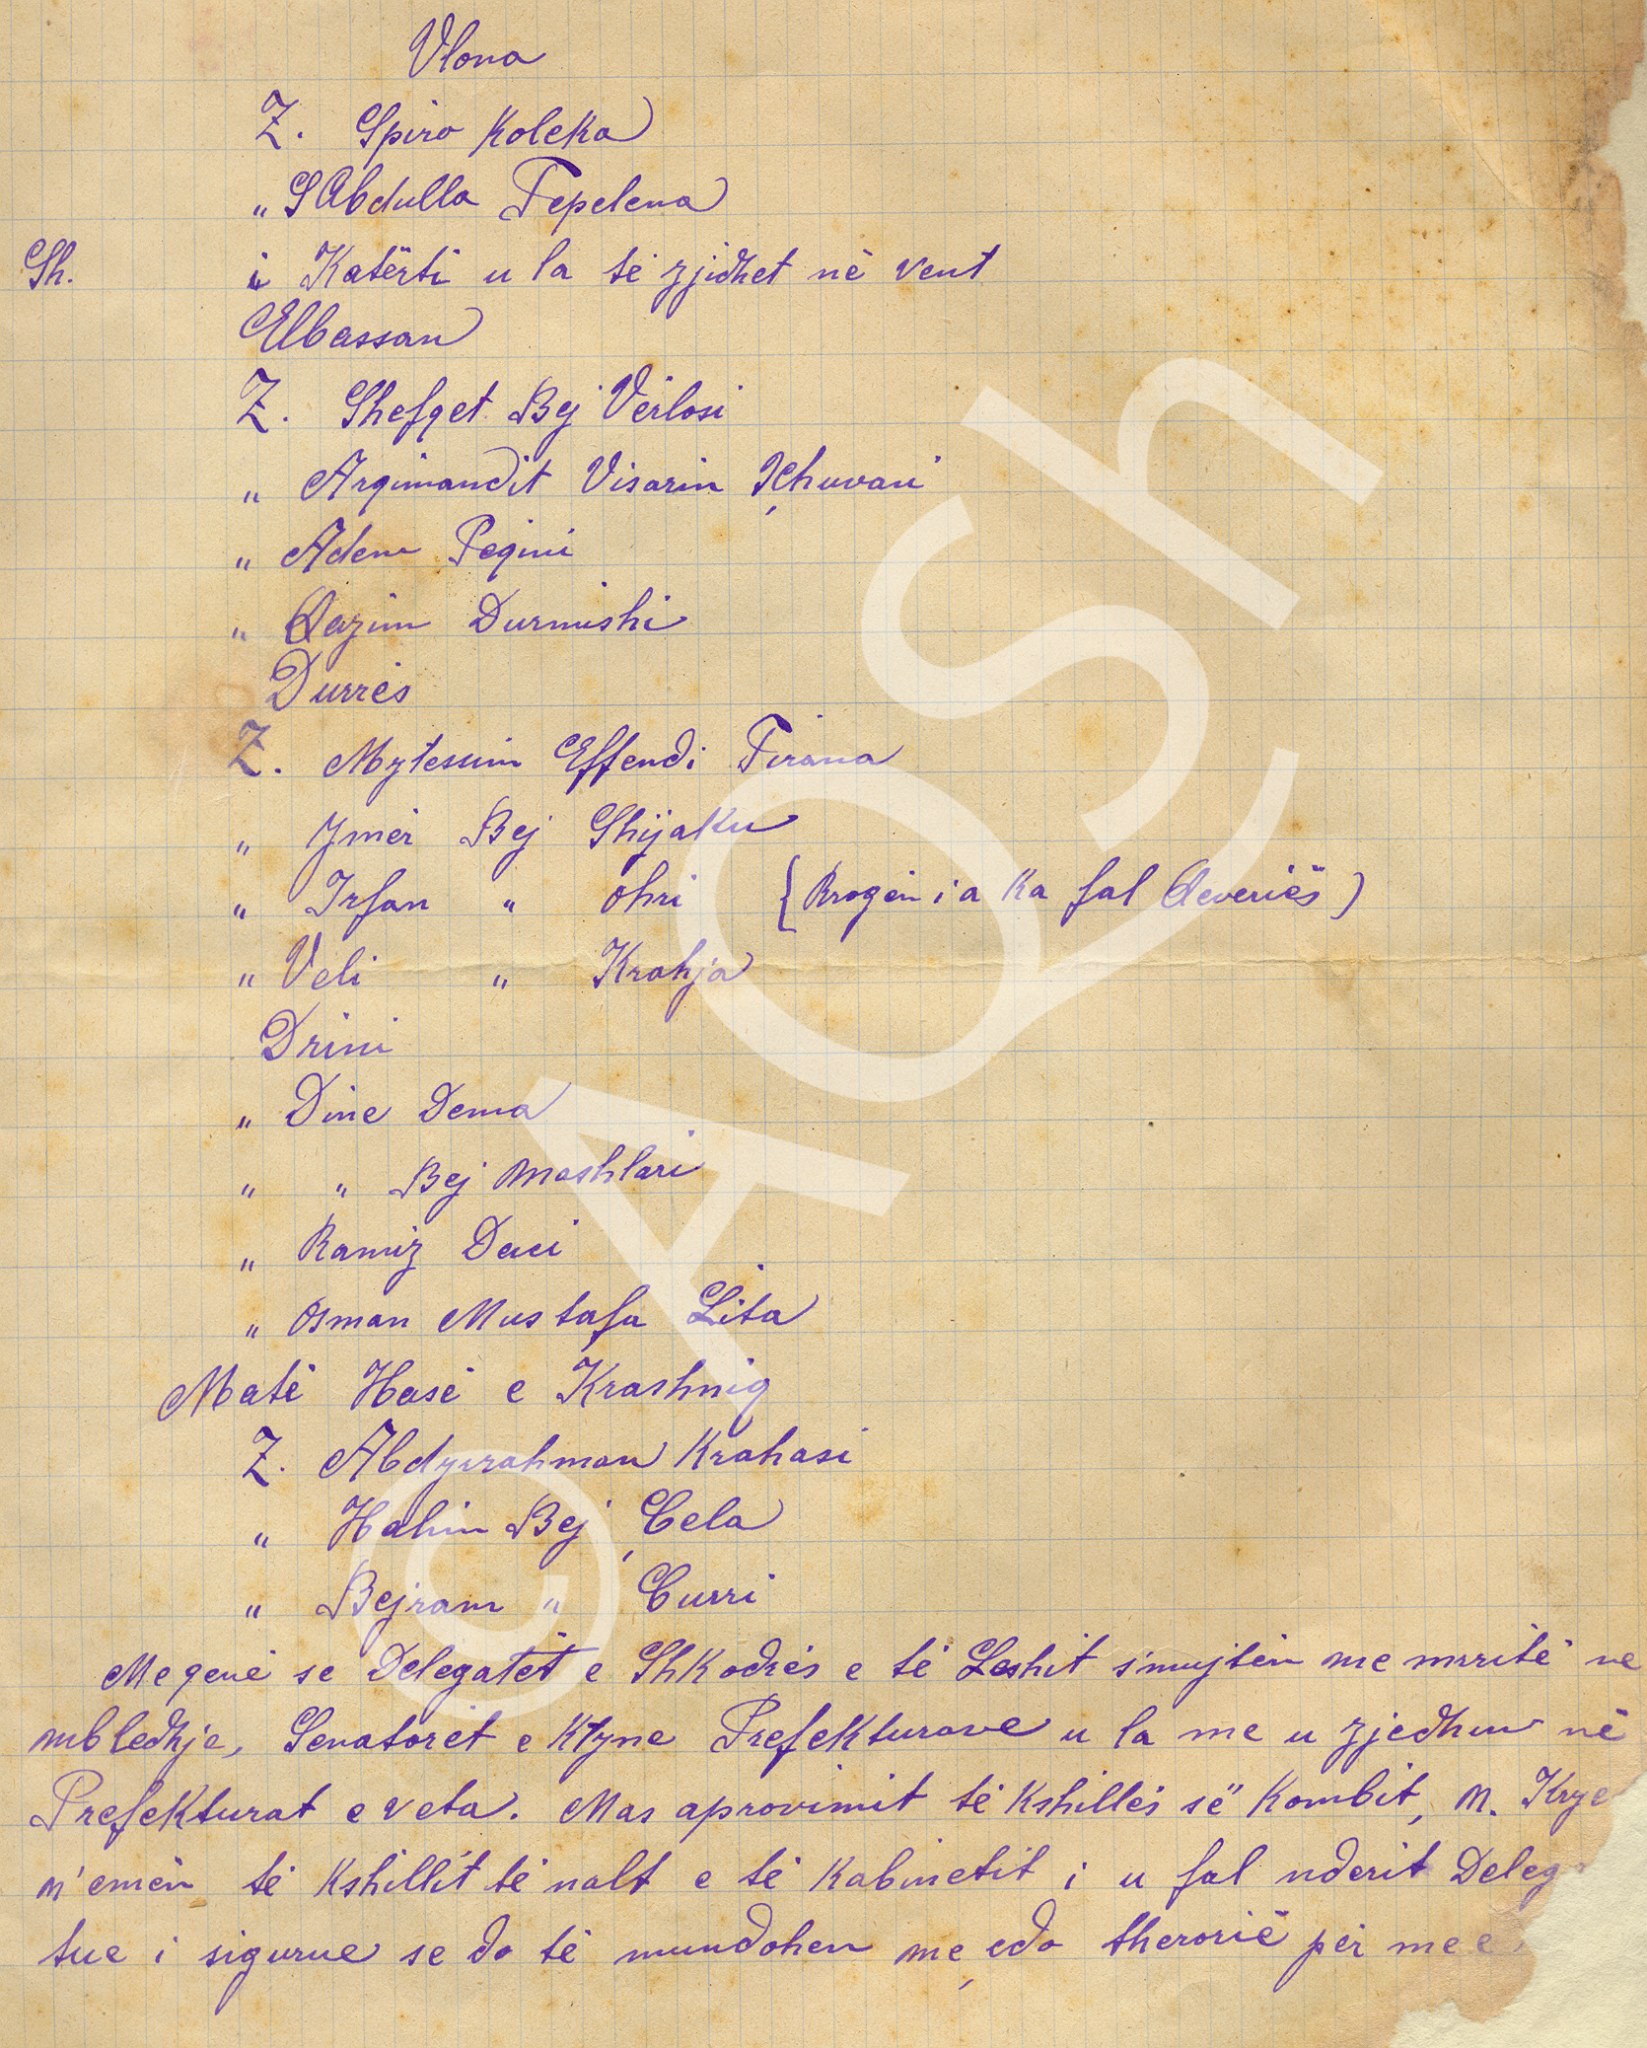 Vlona
Z. Spiro Koleka
" Abdulla Tepelena
Sh. i Katërti u la të zjidhet në vent
Elbassan
Z. Shefqet Bej Vërlosi
" Arqimandit Visarin Xhuvani
" Adem Peqini
" Qazim Durmishi
Durrës
Z. Mytessim Effendi Tirana
" Ymer Bej Shijaku
" Irfan " Ohri (Rrogën i a ka fal Qeveriës)
" Veli " Krahja
Drini
" Dine Dema
" " Bej Mashlari
" Ramiz Daci
" Osman Mustafa Lita
Matë Hasë e Krashniq
Z. Abdyrrahman Krahasi
" Halim Bej Çela
" Bejram " Curri
Me qenë se Delegatët e Shkodrës e të Leshit s'mujtën me mrritë ne
mbledhje, Senatorët e ktyne Prefekturave u la me u zjedhun në
Prefekturat e veta. Mas aprovimit të Kshillës së Kombit, M. Krye
m'emën të Kshillit të nalt e të Kabinetit i u fal nderit Deleg
tue i sigurue se do të mundohen me çdo therorië për me e
AQSh
©